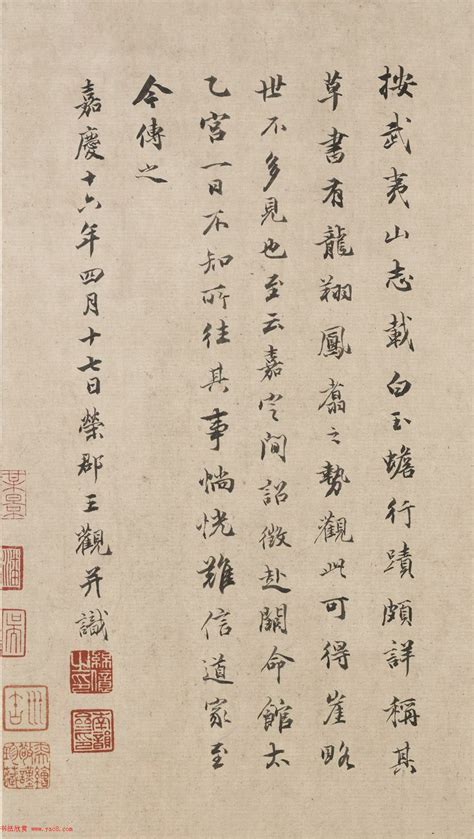 按武夷山志載白玉蟾行蹟頗詳稱其
草書有龍翔鳳翥之勢觀此可得崖略
世不多見也至云嘉定間詔徵赴闕命館太
乙宮一日不知所往其事惝恍難信道家至
今傳之
嘉慶十六年四月十七日榮郡王觀并識
南韻齋印
书法欣赏 www.yac8.com